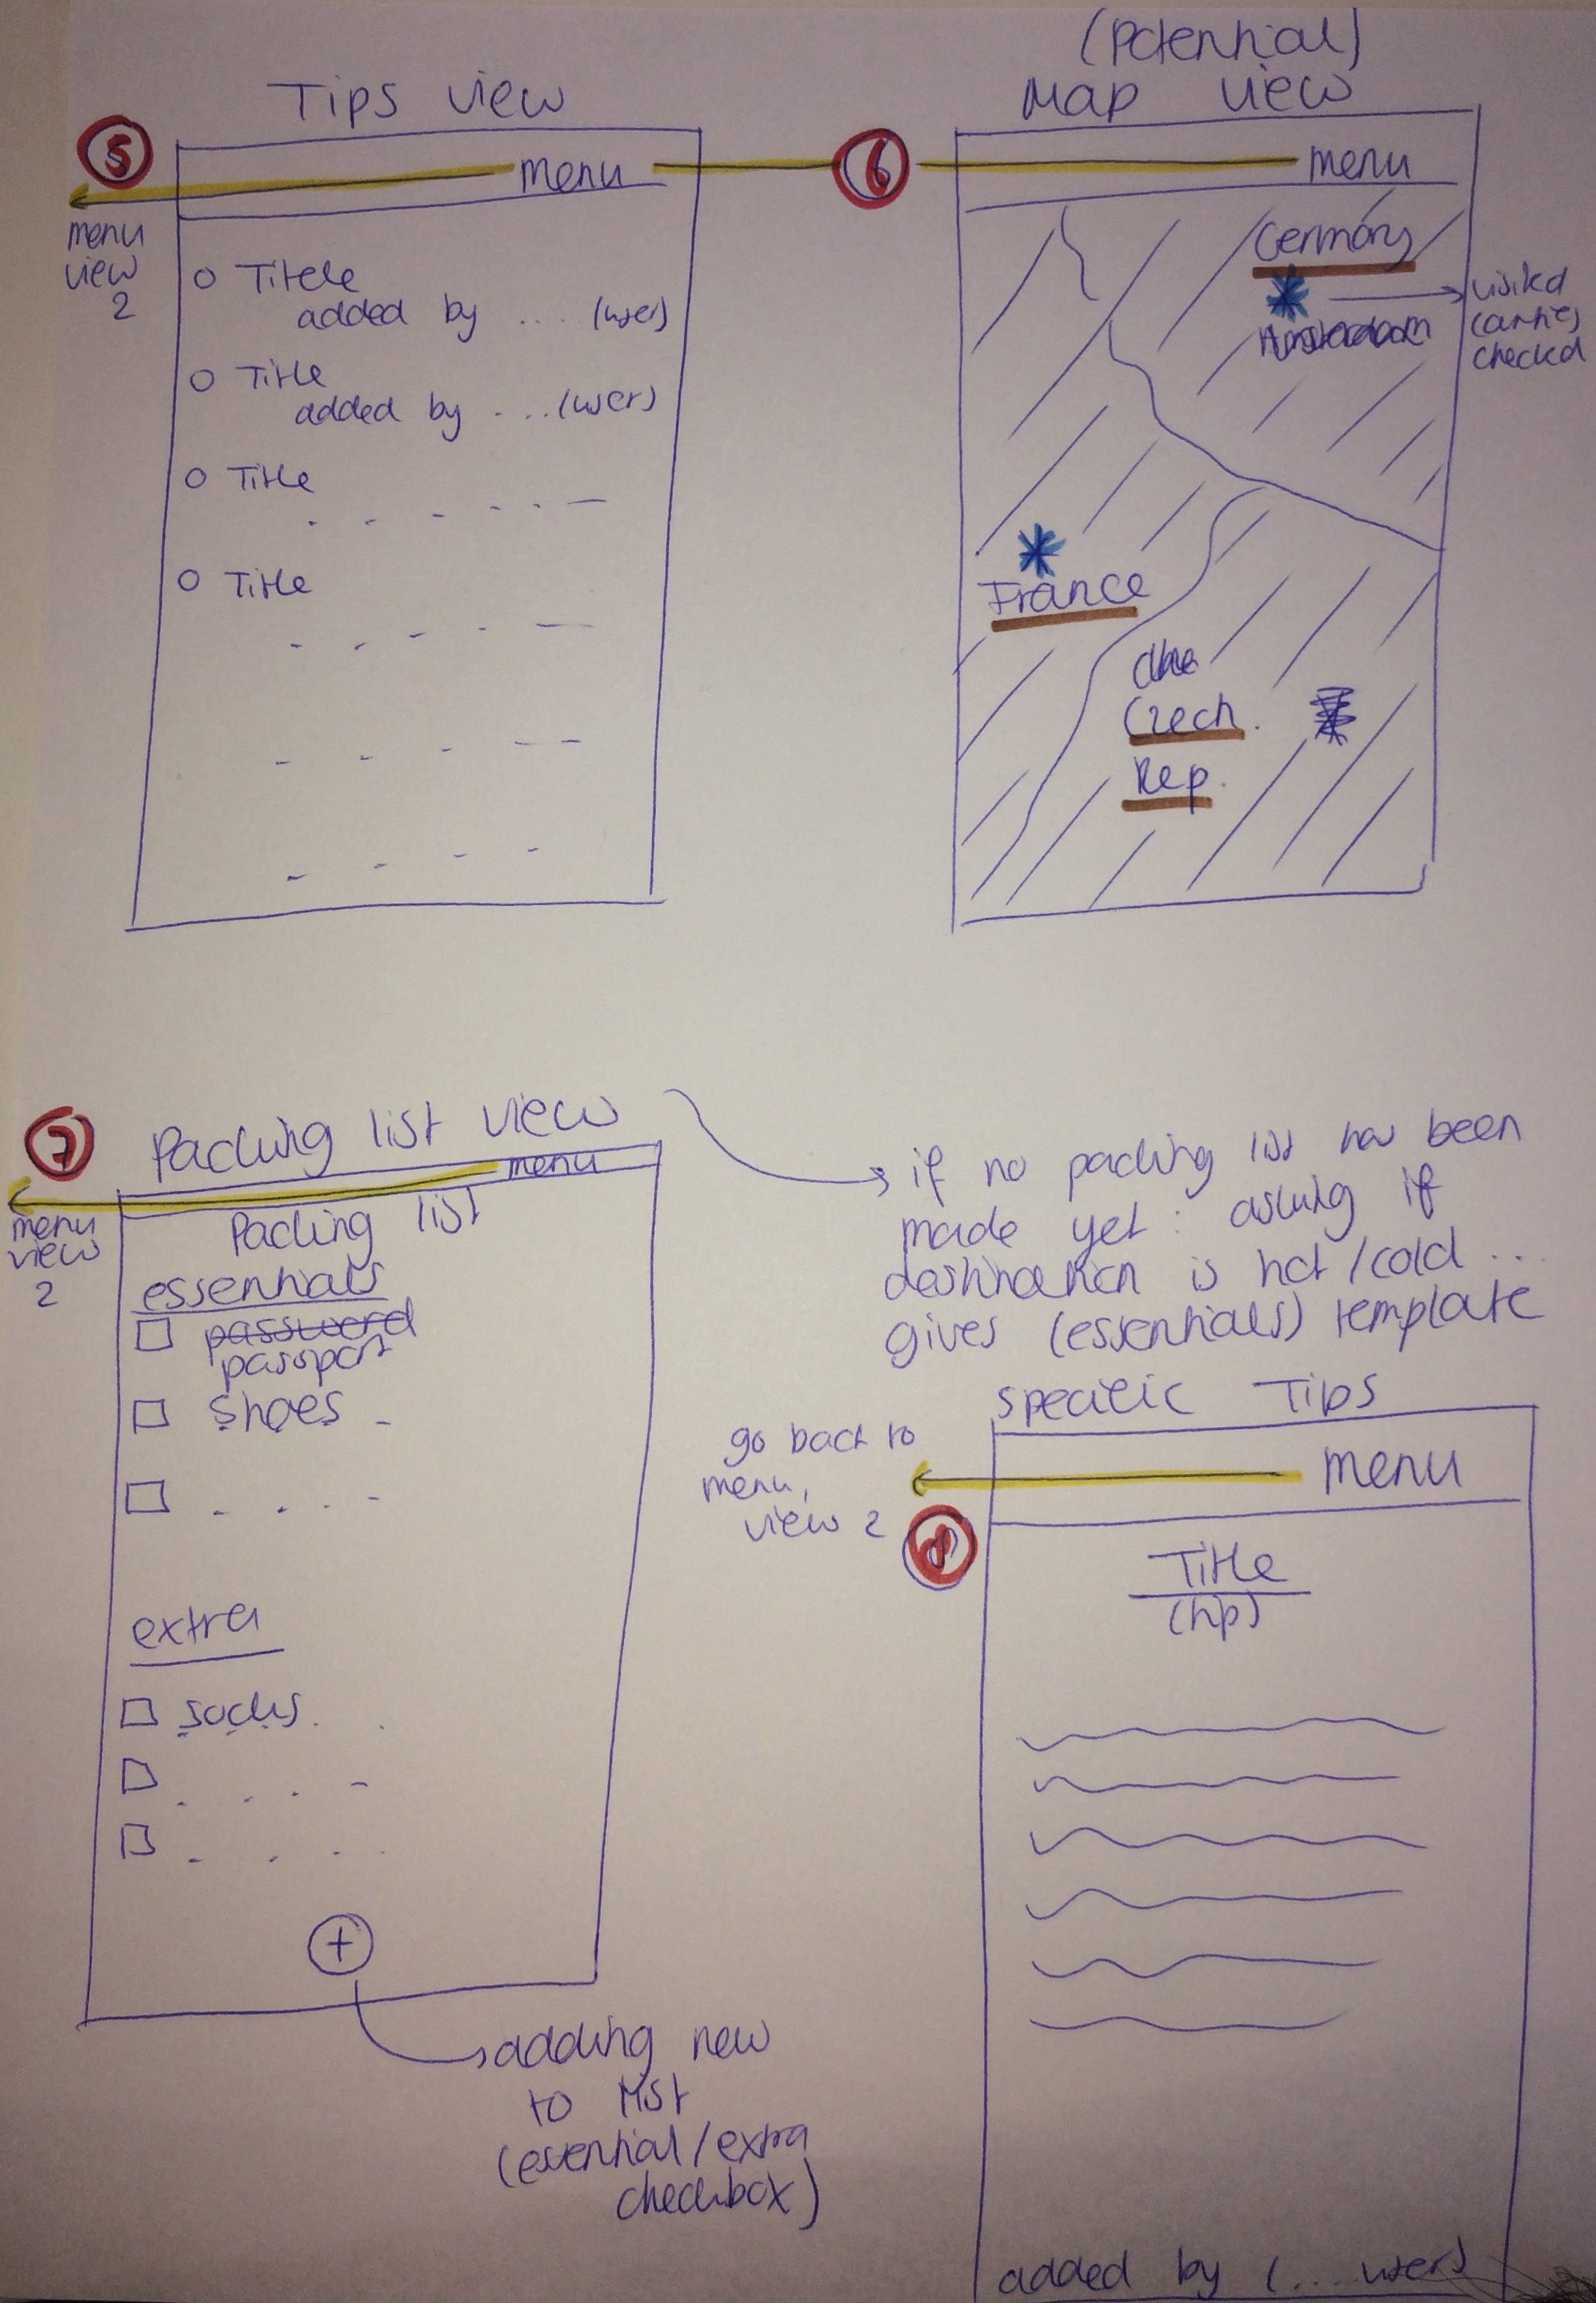 Tips view
5
menu
menu
view
2
Titele
added by .... (user)
Title
added by ....(user)
Title
Title
(Potential)
Map view
6
menu
Germany
visited
checked
France
Czech.
Rep.
7
Packing list view
menu
menu
view
2
Packing list
essentials
password
passport
shoes
extra
socks
+
adding new
to list
(essential/extra
checkbox)
if no packing list has been
made yet: asking if
destination is hot/cold ...
gives (essentials) template
Specific Tips
go back to
menu,
view 2
8
menu
Title
(tip)
added by (... user)